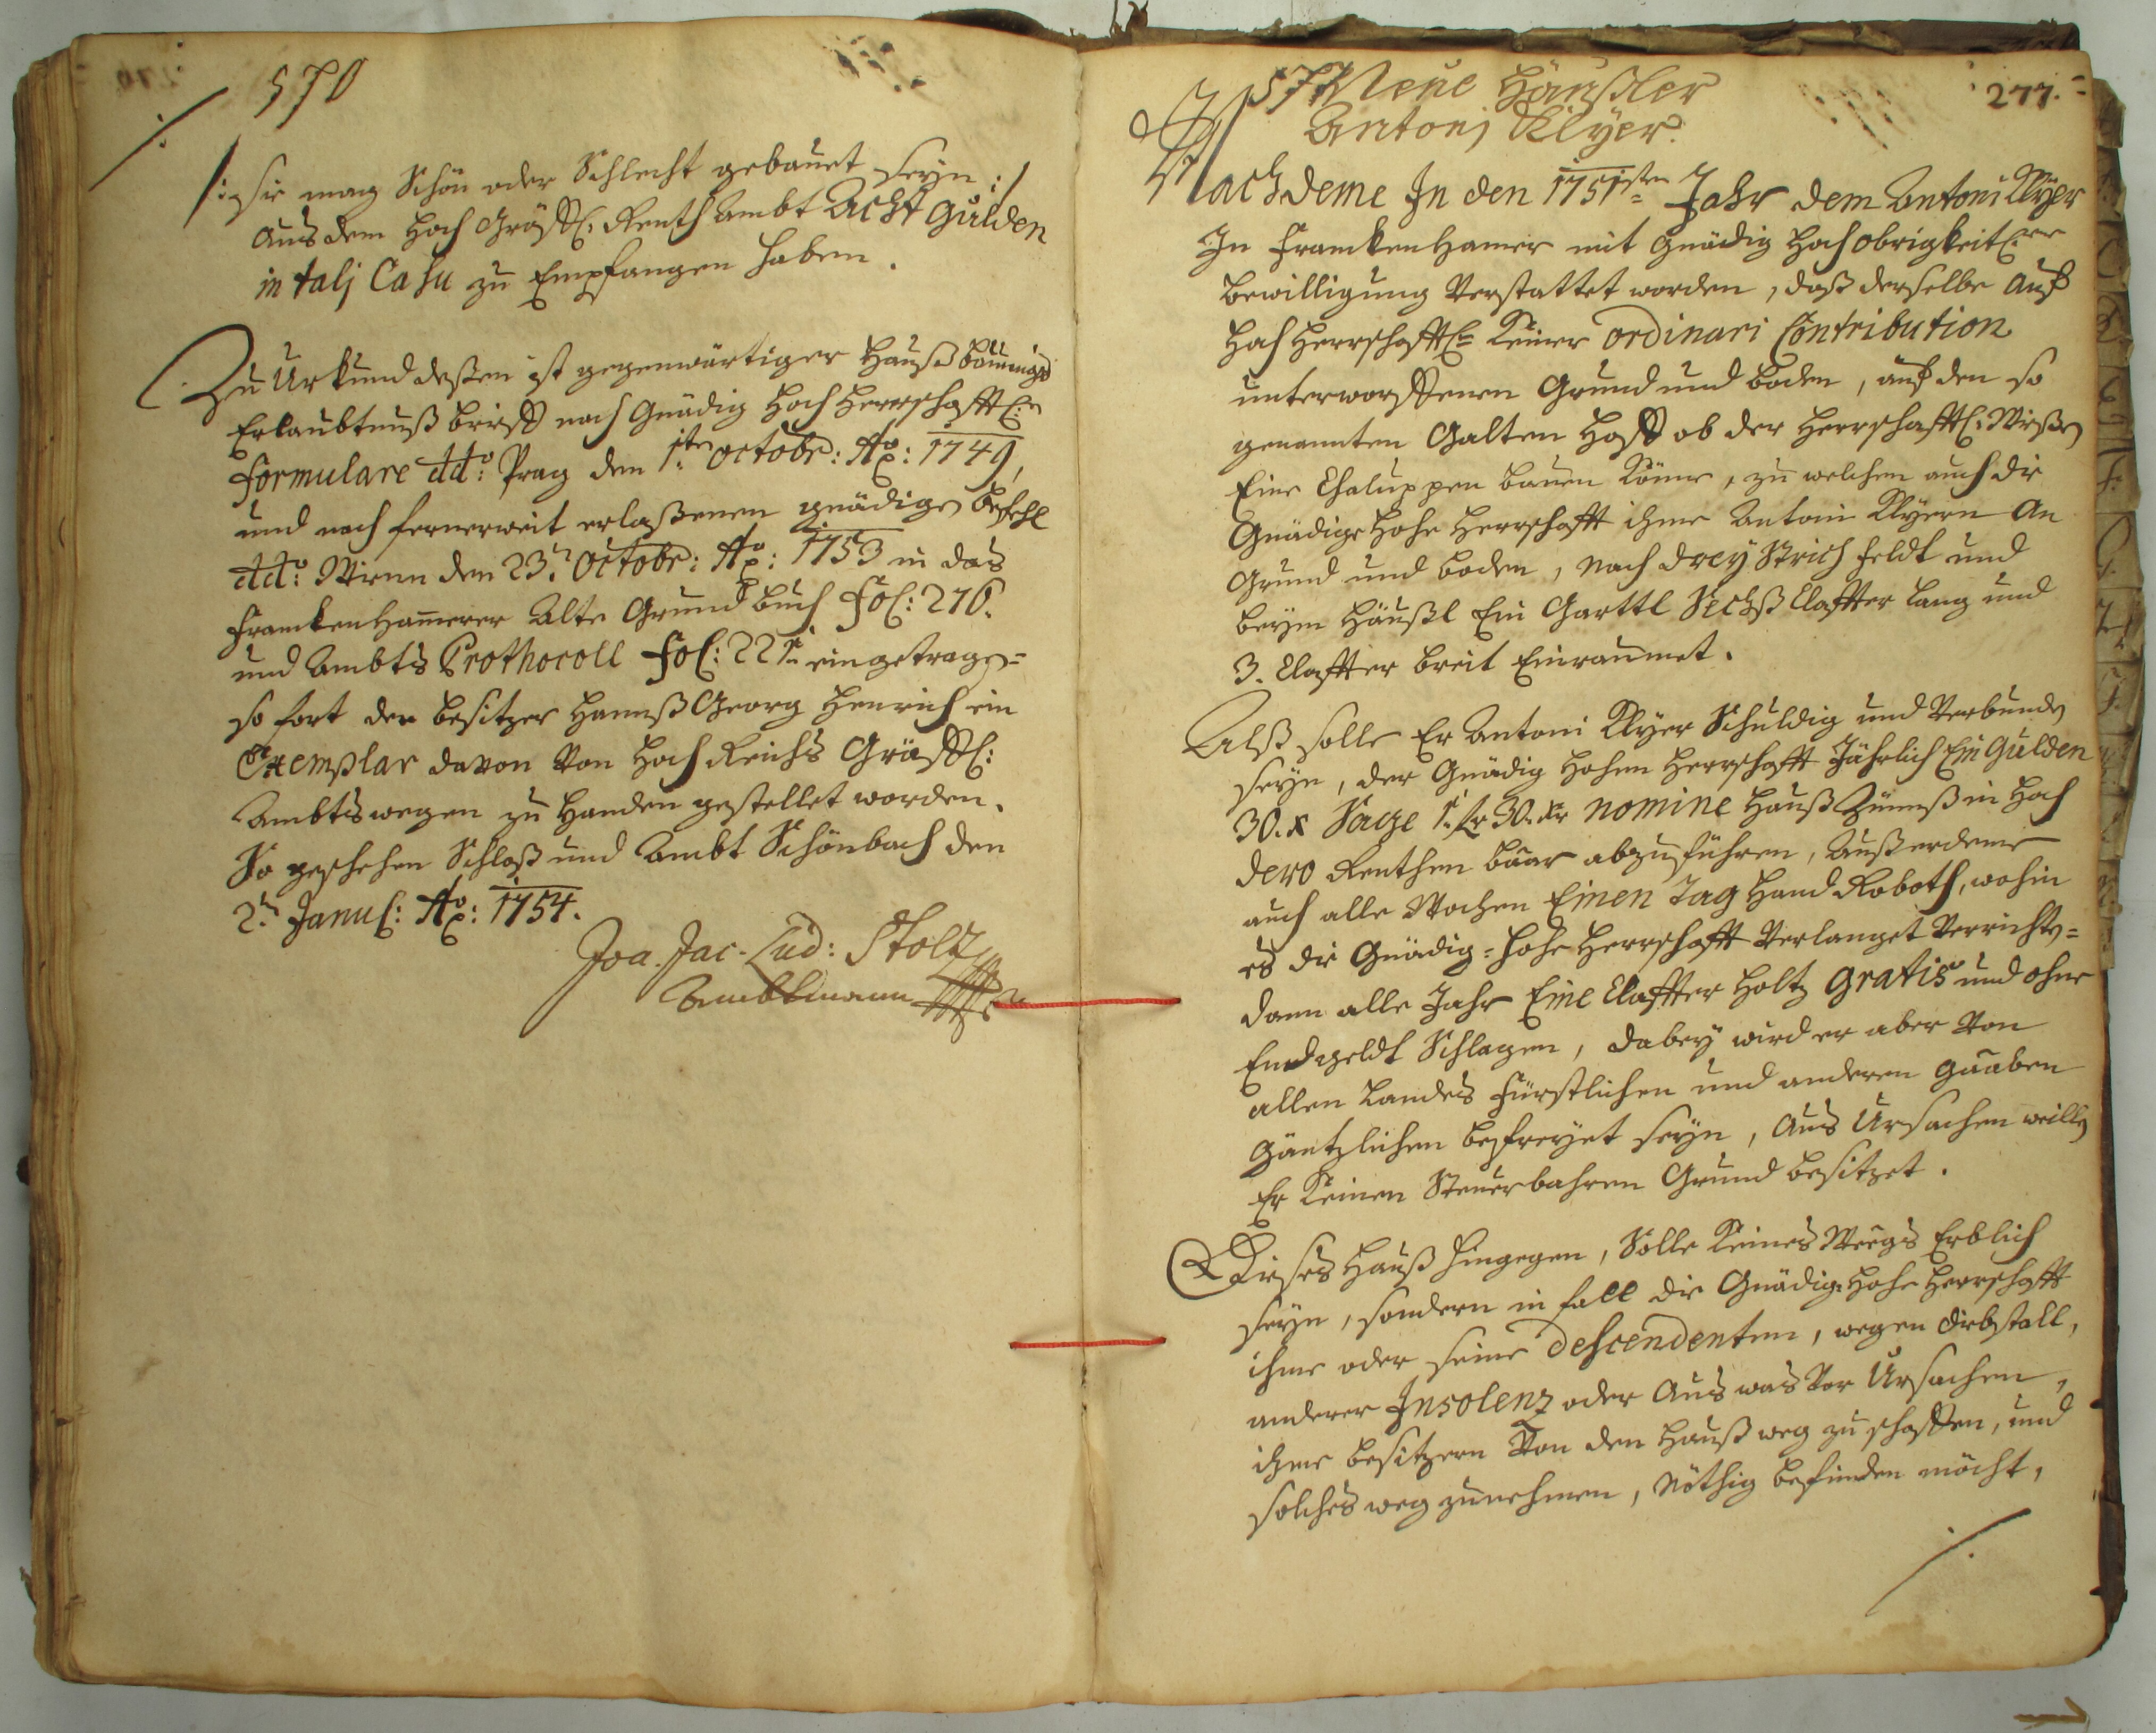 570
/: sie mag Schön oder Schlecht gebauet seyn :/
Aus dem Hoch Gräffl: Renth Ambt Acht Gulden
in talj Casu zu Empfangen haben.
Zu Urkund deßen ist gegenwärtiger Hauß bauungs
Erlaubtnuß brieff nach Gnädig Hoch Herrschafftl:n
formulare dd:o Prag den 1:ten Octobr: Ao: 1749,
und nach fernerweit erlaßenen gnädigen befehl
dd:o Wienn den 23:n Octobr: Ao: 1753 in das
Franckenhammerer Alte Grund buch fol: 276.
und Ambts Prothocoll fol: 221. eingetragen=
so fort der besitzer Hannß Georg Henrich ein
Exemplar davon von Hoch Reichs Gräffl:
Ambts wegen zu Handen gestellet worden.
So geschehen Schloß und Ambt Schönbach den
2:n Janul: Ao: 1754.
Joa. Jac. Lud: Stoltz
Ambtmann
277.
571 Neue Häußler
Antonj Klyer.
Nachdeme In den 1751sten Jahr dem Antoni Klyer
In Franckenhamer mit Gnädig Hoch obrigkeitl:er
bewilligung Verstattet worden, daß derselbe Auf
Hoch Herrschafftl: Keiner ordinari Contribution
unterworffenen Grund und boden, auf den so
genannten Galten Hoff ob der Herrschafftl: Wießen
Eine Chaluppen bauen könne, zu welchen auch die
Gnädige Hohe Herrschafft ihme Antoni Klyern An
Grund und boden, nach drey Strich feldt und
beym Häußl Ein Garttl Sechß Claffter lang und
3. Claffter breit Einraumet.
Alß solle Er Antoni Klyer Schuldig und Verbunden
seyn, der Gnädig Hohen Herrschafft Jährlich Ein Gulden
30. x Sage 1. fr 30. xr nomine Hauß Zünnß in Hoch
dero Renthen baar abzuführen, Außerdeme
auch alle Wochen Einen Tag Hand Roboth, wohin
es die Gnädig=Hohe Herrschafft Verlanget Verrichten=
dann alle Jahr Eine Claffter Holtz gratis und ohne
Endgeldt Schlagen, dabey wird er aber Von
allen Landes Fürstlichen und anderen gaaben
Gäntzlichen befreyet seyn, Aus Ursachen weillen
Er Keinen Steuerbahren Grund besitzet.
Dieses Hauß hingegen, Solle Keines Weegs Erblich
seyn, sondern in fall die Gnädig=Hohe Herrschafft
ihme oder seine Descendenten, wegen diebstall,
anderer Insolenz oder Aus was Vor Ursachen,
ihme besitzern Von den Hauß weg zu schaffen, und
solches weg zunehmen, Nöthig befinden möcht,